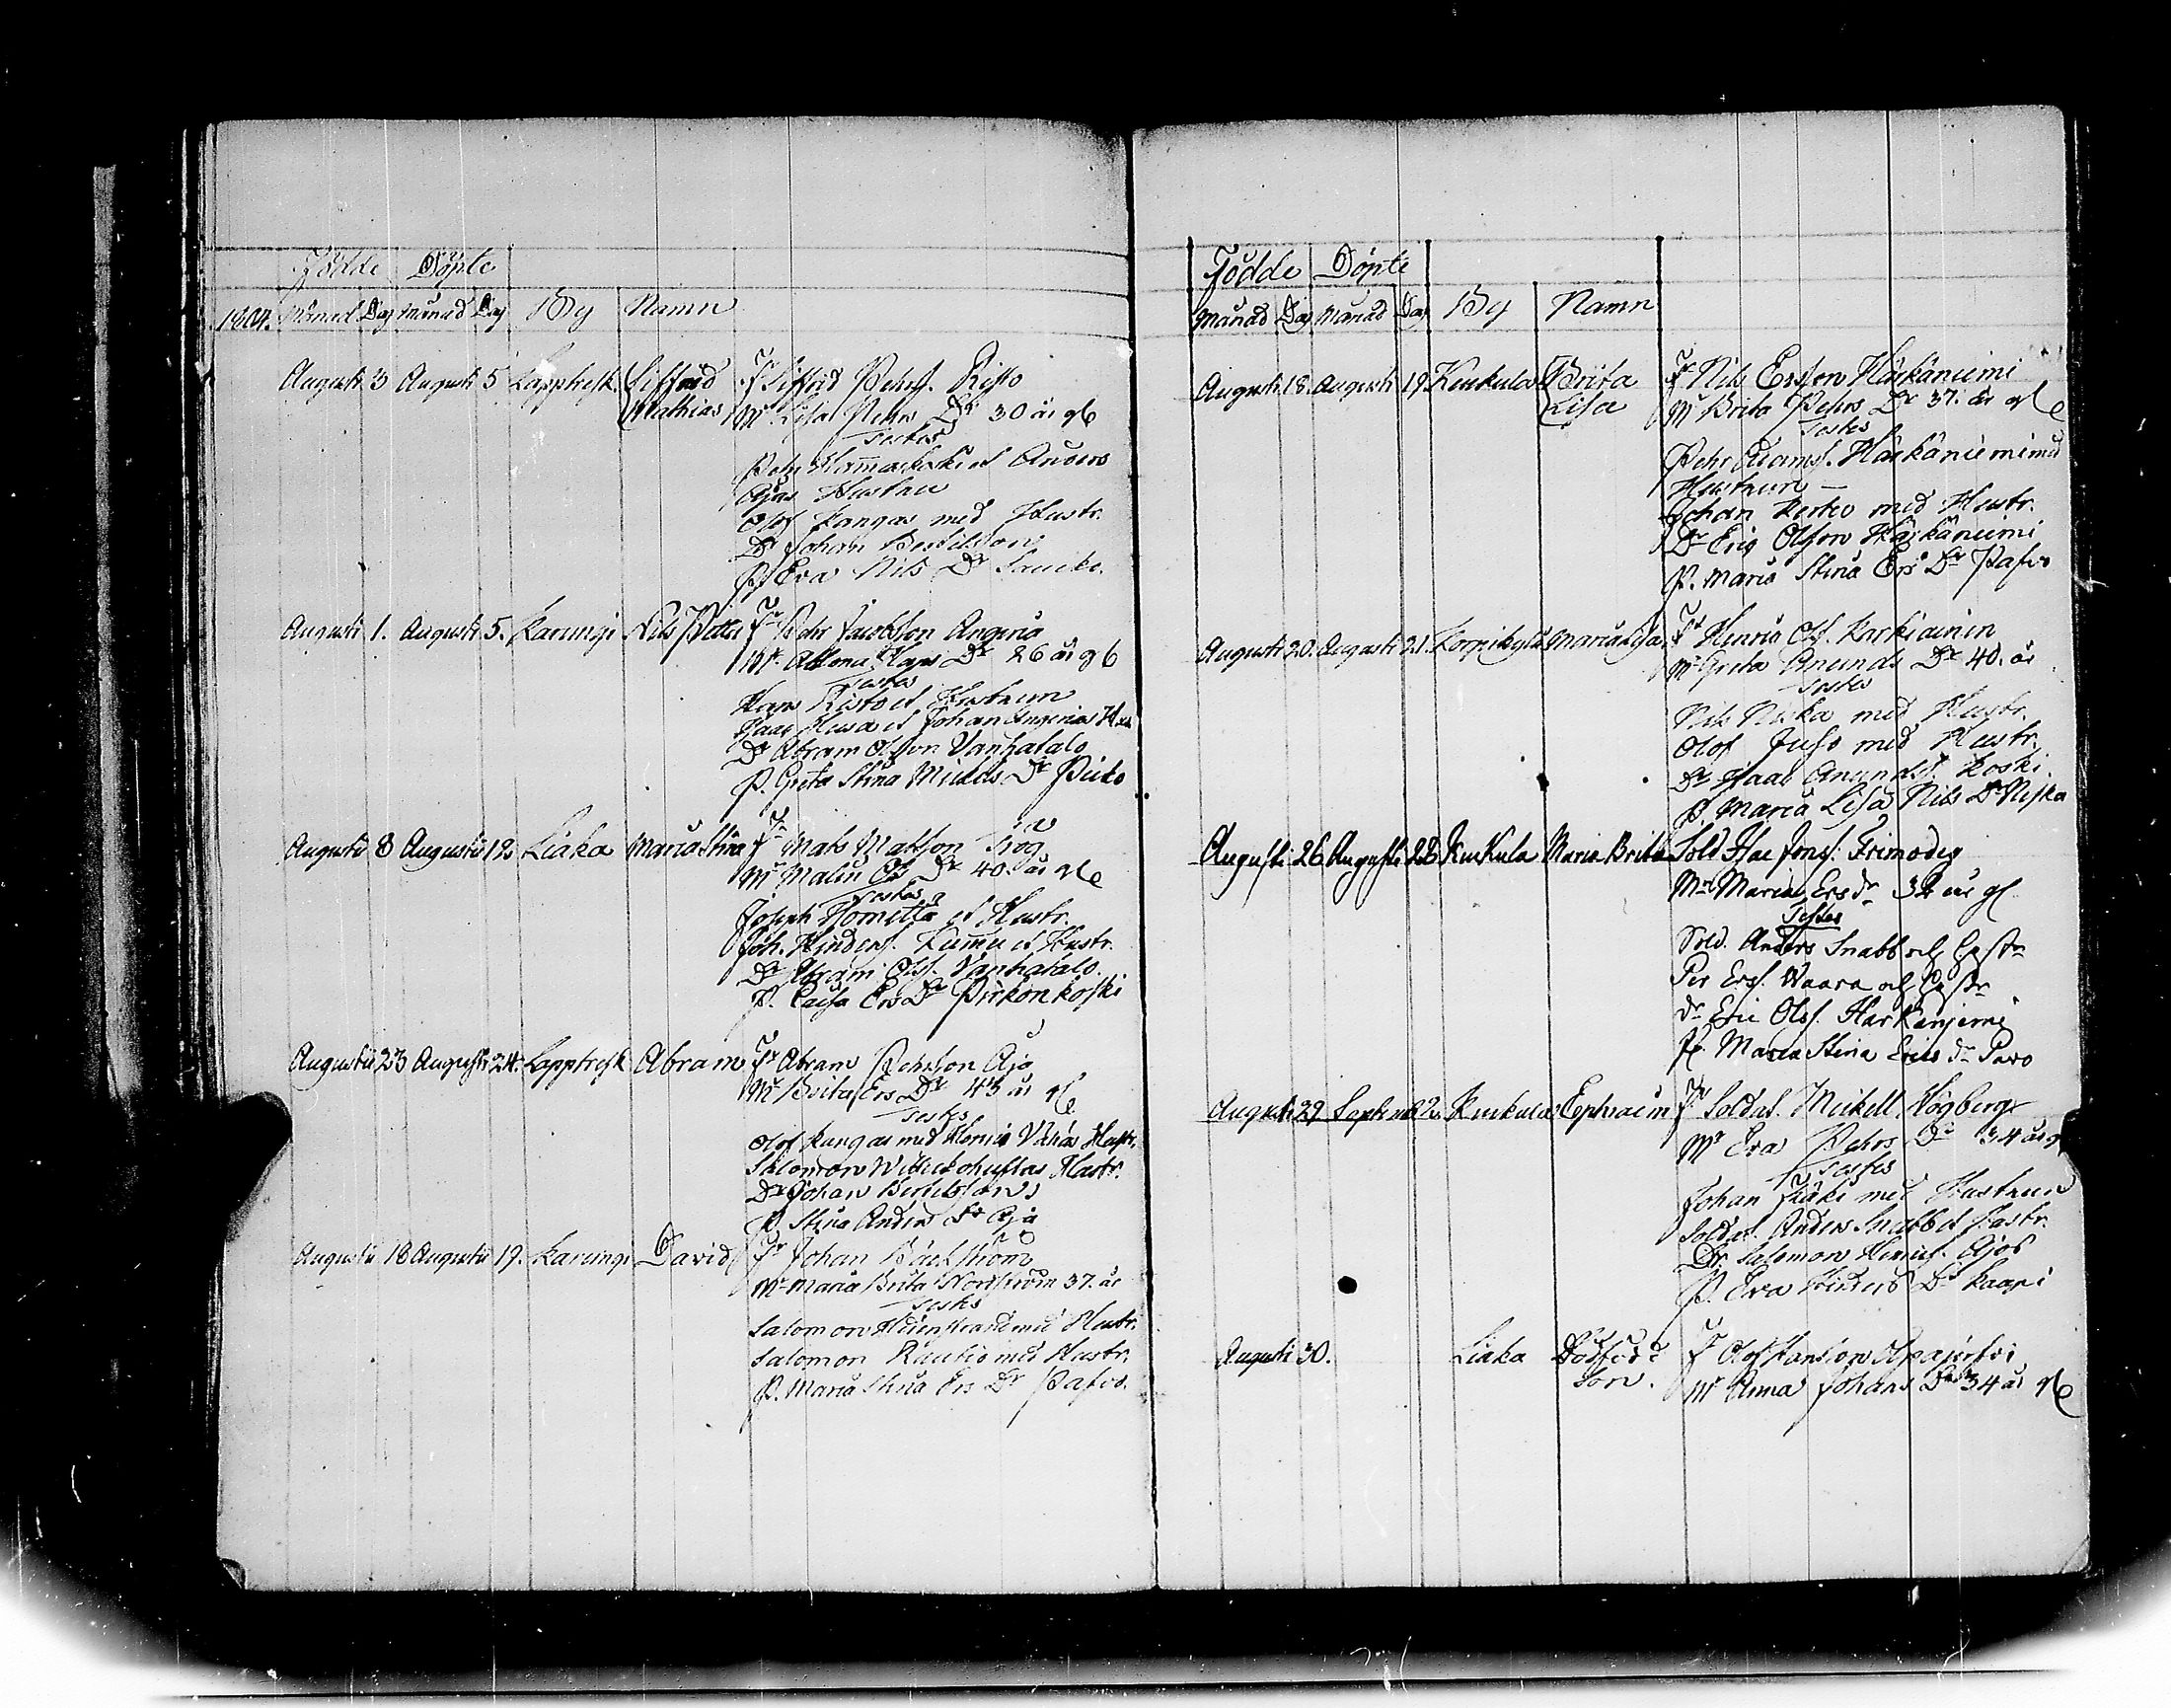 Födde Döpte
1804. Månad Dag månad Dag By Namn
Augusti 3 Augusti 5 Lappträsk Siffred Fr Sifrid Pehrs. Risto
Mathias Mr Lisa Pehrs Dr 30 år gl
Testes
Pehr et Anders
Ajas Hustru
Olof Kangas med Hustr.
Dr Johan Bertilsson
P. Eva Nils Dr
Augusti 1. Augusti 5. Karungi Nils Petter Fr Pehr Jacobsson Angeria
Mr Hans Dr 26 år gl
Testes
Hans Risto et Hustrun
Isaac et Johan Angerias
Dr Abram Olsson Vanhatalo
P. Greta Stina Mickels Dr
Augusti 8 Augusti 12 Liaka Maria Stina Fr Mats Matsson
Mr Malin Ols Dr 40 år gl
Testes
Joseph et Hustr.
Joh. et Hustr.
Dr Abram Olss. Vanhatalo
P. Caisa Ers Dr Pirkonkoski
Augusti 23 Augusti 24. Lappträsk Abram Fr Abram Pehrsson Ajo
Mr Brita Ers Dr 43 år gl
Testes
Olof Kangas med Hustr.
Salomon Hustr.
Dr Johan Bertilsson
P. Stina Anders Dr Aja
Augusti 18 Augusti 19. Karungi David Fr Johan Bäckström
Mr Maria Brita Nordström 37. år
Testes
Salomon med Hustr.
Salomon Rautio med Hustr.
P. Maria Stina Ers Dr Pafvo.
Födde Döpte
Månad Dag Månad Dag By Namn
Augusti 18. Augusti 19. Kuckula Brita Fr Nils Ersson Härkäniemi
Lisa Mr Brita Pehrs Dr 37. år gl
Testes
Pehr Adams. Härkäniemi med
Hustrun
Johan med Hustr.
Dr Eric Olsson Härkäniemi
P. Maria Stina Ers Dr Pafvo
Augusti 20. Augusti 21. Korpikylä Maria Lisa Fr Henric Ols. Karkiainen
Mr Greta Anunds Dr 40. år
Testes
Nils Niska med Hustr.
Olof Juso med Hustr.
Dr Isaac Anundss. Koski
P. Maria Lisa Nils Dr Niska
Augusti 26 Augusti 28 Kuckula Maria Brita Sold Isac Jonss. Frimodig
Mr Maria Ersdr 32 år gl
Testes
Sold. Anders Snabb och Hustr
Per Erss. Waara och Hustr
Dr Eric Olss. Harkaniemi
P. Maria Stina Erics dr Pavo
Augusti 29 Septemb 2. Kuckula Ephraim Fr Soldat. Mickell Högberg
Mr Eva Pehrs Dr 34 år g
Testes
Johan med Hustrun
Soldat. Anders Snabb et Hustr.
Dr. Salomon Henrics. Ajos
P. Eva Dr Kaapi
Augusti 30. Liaka Dödfödd Fr Olof Hansson Alpajärfvi
Son. Mr Anna Johans Dr 34 år gl